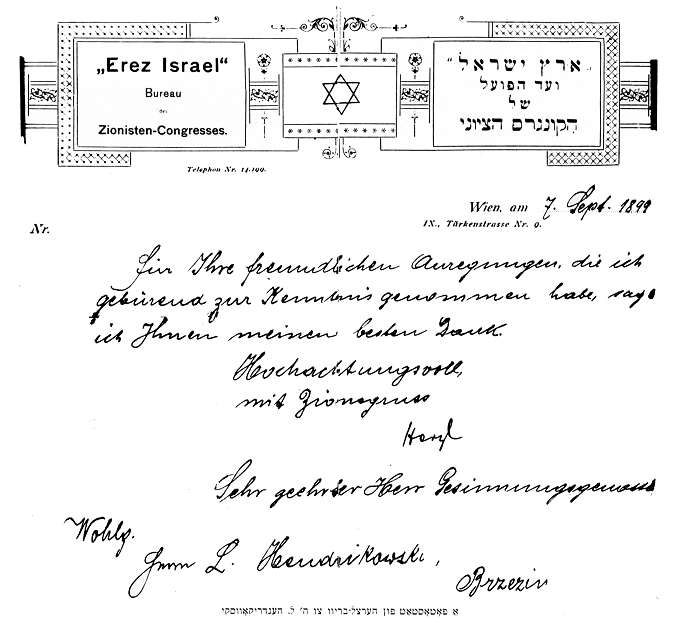 „Erez Israel“
Bureau
des
Zionisten-Congresses.
„ארץ ישראל“
ועד הפועל
של
הקונגרס הציוני
Telephon Nr. 14.199.
Wien, am 7. Sept. 1899
IX., Türkenstrasse Nr. 9.
Nr.
Für Ihre freundlichen Anregungen, die ich
gebürend zur Kenntnis genommen habe, sage
ich Ihnen meinen besten Dank.
Hochachtungsvoll,
mit Zionsgruss
Herzl
Sehr geehrter Herr Gesinnungsgenosse
Wohlg.
Herrn L. Hendrikowski,
Brzezin
א פאָטאָסטאַט פון הערצל-בריוו צו ה' ל. הענדריקאָווסקי